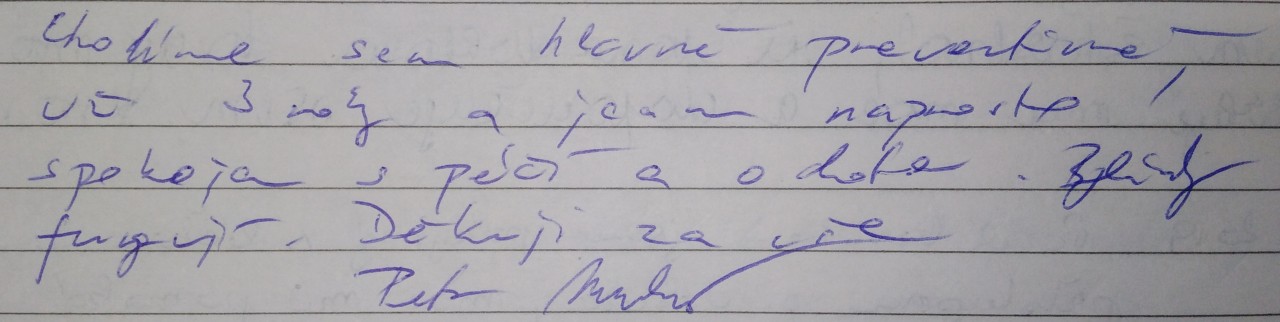 Chodíme sem hlavně preventivně,
už 3 roky a jsem naprosto
spokojen s péčí a ochotou.
fungují. Děkuji za vše
Petr